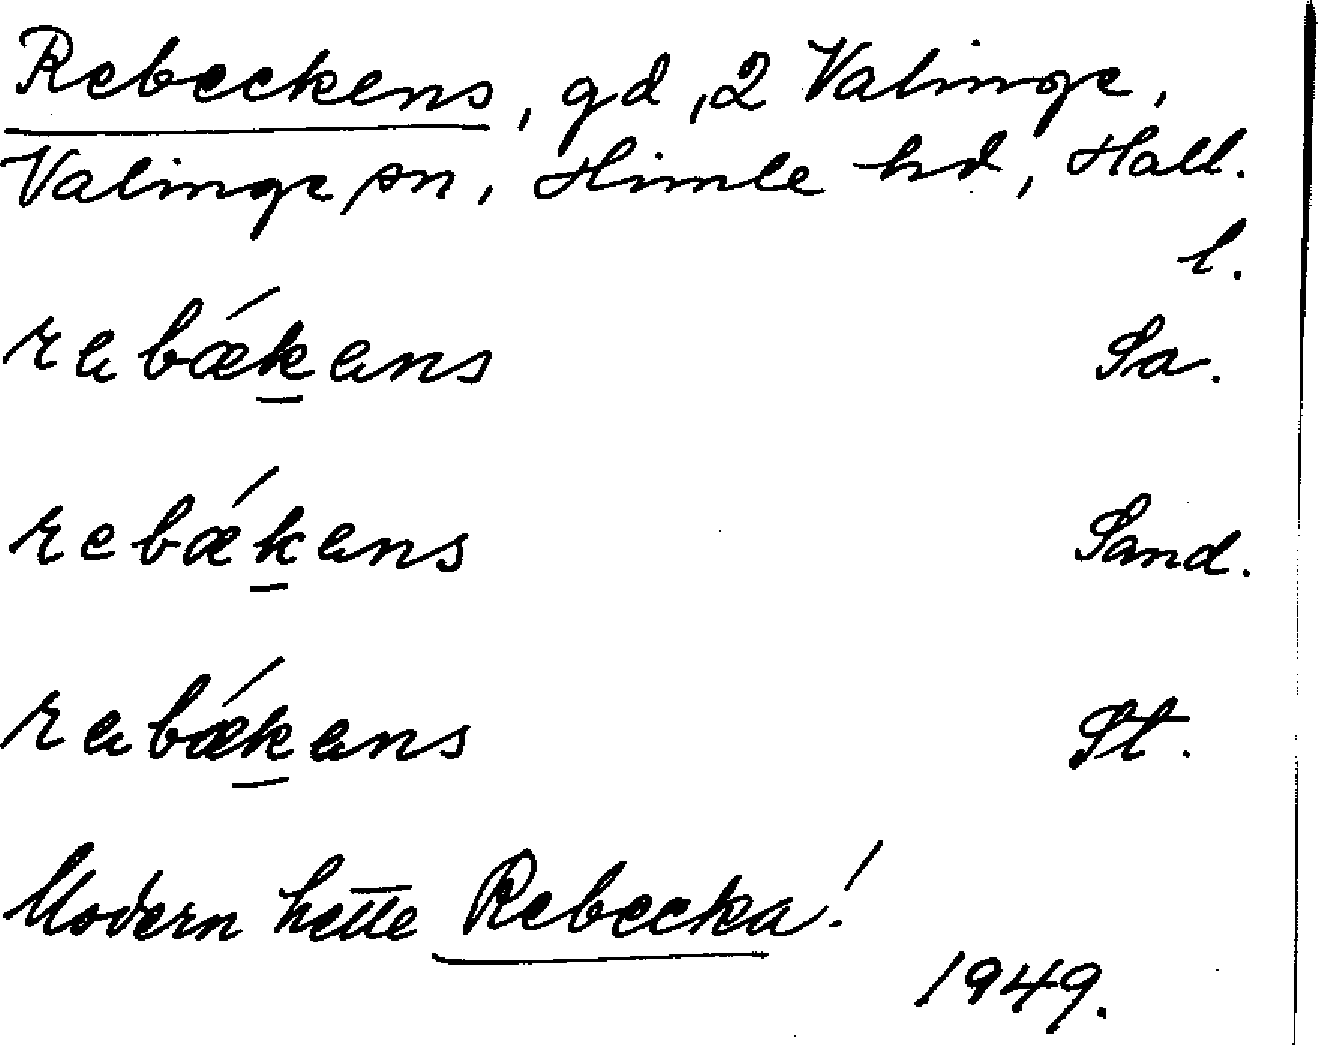 Rebeckens, gd, 2 Valinge,
Valinge sn, Himle hd, Hall.
l.
rebǽkens Sa.
rebǽkens Sand.
rebǽkens St.
Modern hette Rebecka!
1949.